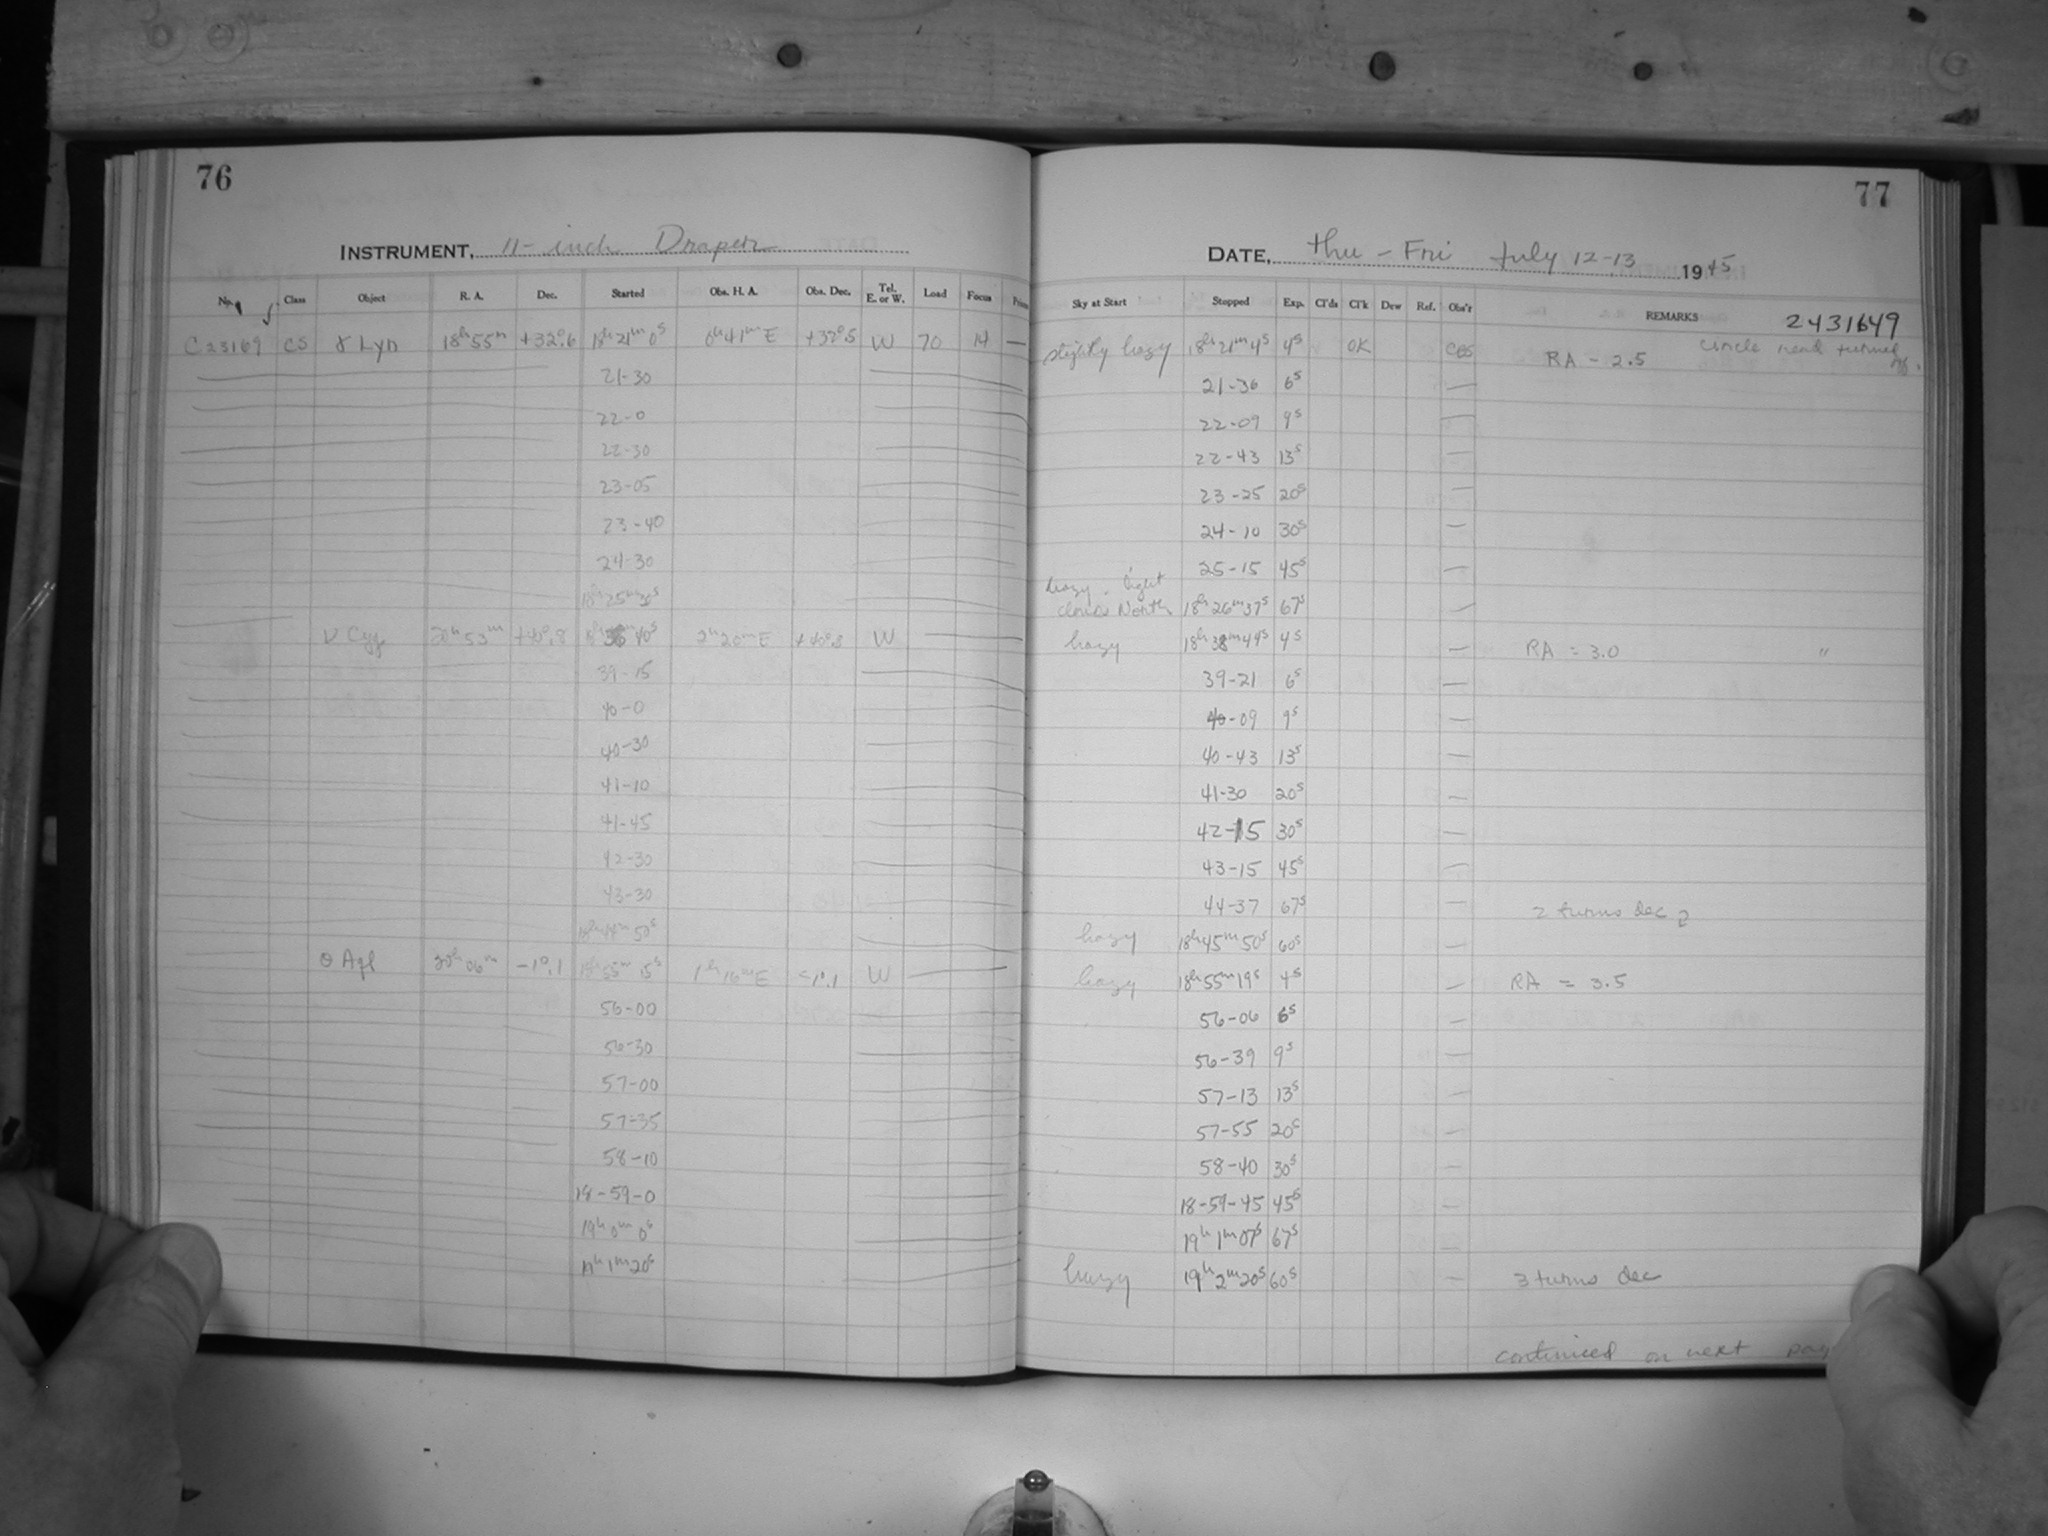 76
INSTRUMENT, 11-inch Draper
No. Class Object R. A. Dec. Started Obs. H. A. Obs. Dec. Tel. E. or W. Load Focus
C23169 CS γ Lyn 18h55m +32°.6 18h21m0s 0h41mE +32°.5 W 70 14 —
21-30
22-0
22-30
23-05
23-40
24-30
18h25m30s
ν Cyg 20h53m +40°.8 40s 2h20mE +40°.8 W
39-15
40-0
40-30
41-10
41-45
42-30
43-30
18h44m50s
θ Aql 20h06m -1°.1 18h55m15s 1h16mE -1°.1 W
56-00
56-30
57-00
57-35
58-10
18-59-0
19h0m0s
19h1m20s
77
DATE, Thu - Fri July 12-13 1945
Sky at Start Stopped Exp. Cl'ds Cl'k Dew Ref. Obs'r REMARKS 2431649
slightly hazy 18h21m4s 4s OK RA - 2.5 circle read turned off.
21-36 6s —
22-09 9s —
22-43 13s —
23-25 20s —
24-10 30s —
25-15 45s —
hazy. light
clouds North 18h26m37s 67s —
hazy 18h38m44s 4s — RA = 3.0 "
39-21 6s —
40-09 9s —
40-43 13s —
41-30 20s —
42-15 30s —
43-15 45s —
44-37 67s — 2 turns dec
hazy 18h45m50s 60s —
hazy 18h55m19s 4s — RA = 3.5
56-06 6s —
56-39 9s —
57-13 13s —
57-55 20s —
58-40 30s —
18-59-45 45s —
19h1m07s 67s —
hazy 19h2m20s 60s — 3 turns dec
continued on next